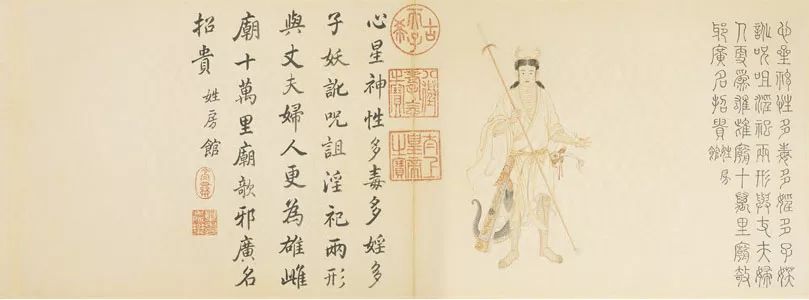 心星神性多毒多婬多子妖
訛呪詛淫祀兩形與丈夫婦
人更為雄雌廟十萬里廟歌
邪廣名招貴姓房館
古希天子
八徵耄念之寶
太上皇帝之寶
心星神性多毒多婬多
子妖訛呪詛淫祀兩形
與丈夫婦人更為雄雌
廟十萬里廟歌邪廣名
招貴 姓房館